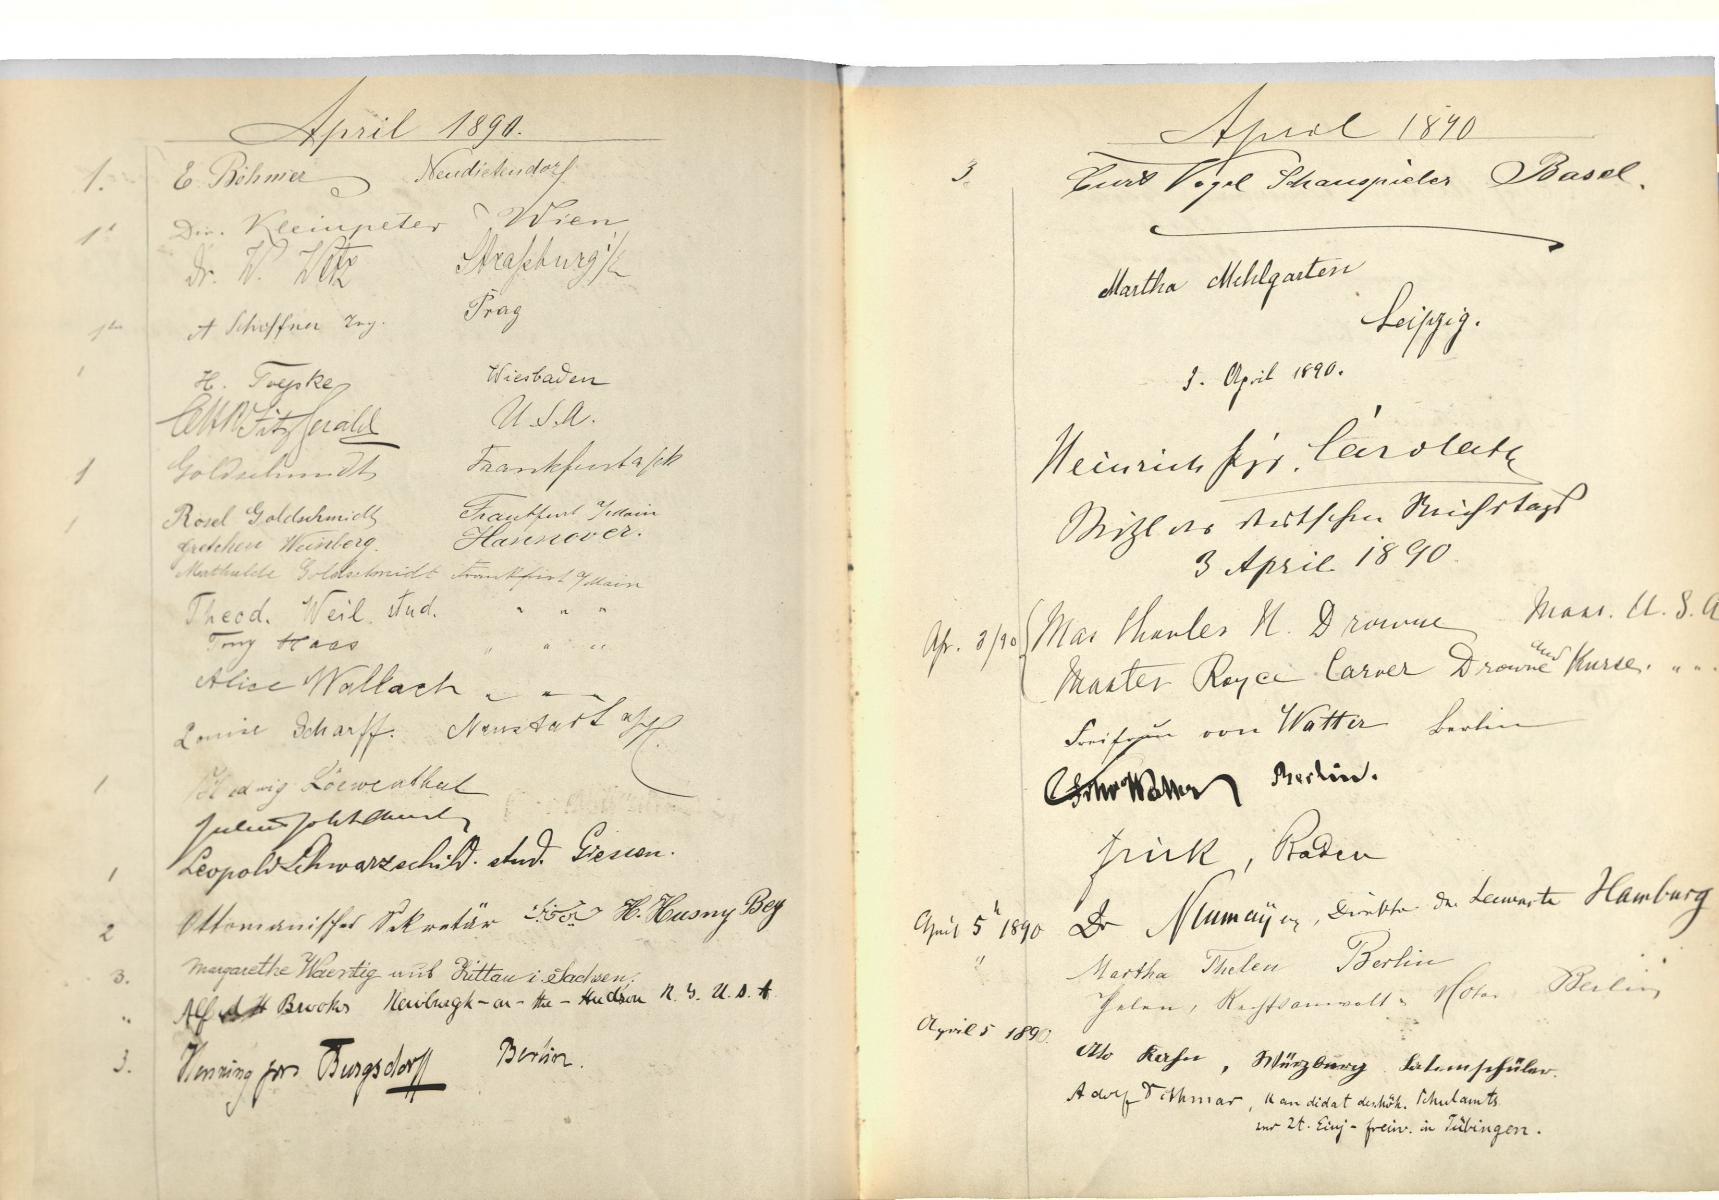 April 1890.
1. E. Böhmer Neudietendorf
1 Dir. Kleinpeter Wien
Dr. W. Straßburg i/E
A Schöffner Ing. Prag
H. Toepke Wiesbaden
FitzGerald U.S.A.
1 Goldschmidt Frankfurt a/M
1 Rosel Goldschmidt Frankfurt a/Main
Gretchen Weinberg. Hannover.
Mathilde Goldschmidt Frankfurt a/Main
Theod. Weil. stud. " " "
Tony Haas " " "
Alice Wallach " " "
Louise Scharff. Neustadt a/H.
1 Hedwig Löewenthal
1 Leopold Schwarzschild. stud. Giessen.
2 Ottomanischer Sekretär H. Husny Bey
3. Margarethe Waentig aus Zittau i. Sachsen.
" Alf H Brooks Newburgh-on-the-Hudson N.Y. U.S.A
3. Henning von Burgsdorff Berlin.
April 1890
3. Curt Vogel Schauspieler Basel.
Martha Mehlgarten
Leipzig.
3. April 1890.
Heinrich Carolath
Mitgl. des deutschen Reichstags
3 April 1890.
Ap. 3/90 Mrs Charles H. Drowne Mass. U.S.A
Master Royce Carver Drowne and Nurse. " "
Freifrau von Watter Berlin
Frhr Watter Berlin.
Frick, Baden
April 5 1890 Dr Neumayer, Direktor der Seewarte Hamburg
" Martha Thelen Berlin
Thelen, Rechtsanwalt u. Notar Berlin
April 5 1890.
Otto Hahn, Würzburg Lateinschüler.
Adolf Dithmar, Kandidat des höh. Schulamts
zur Zt. Einj-freiw. in Tübingen.